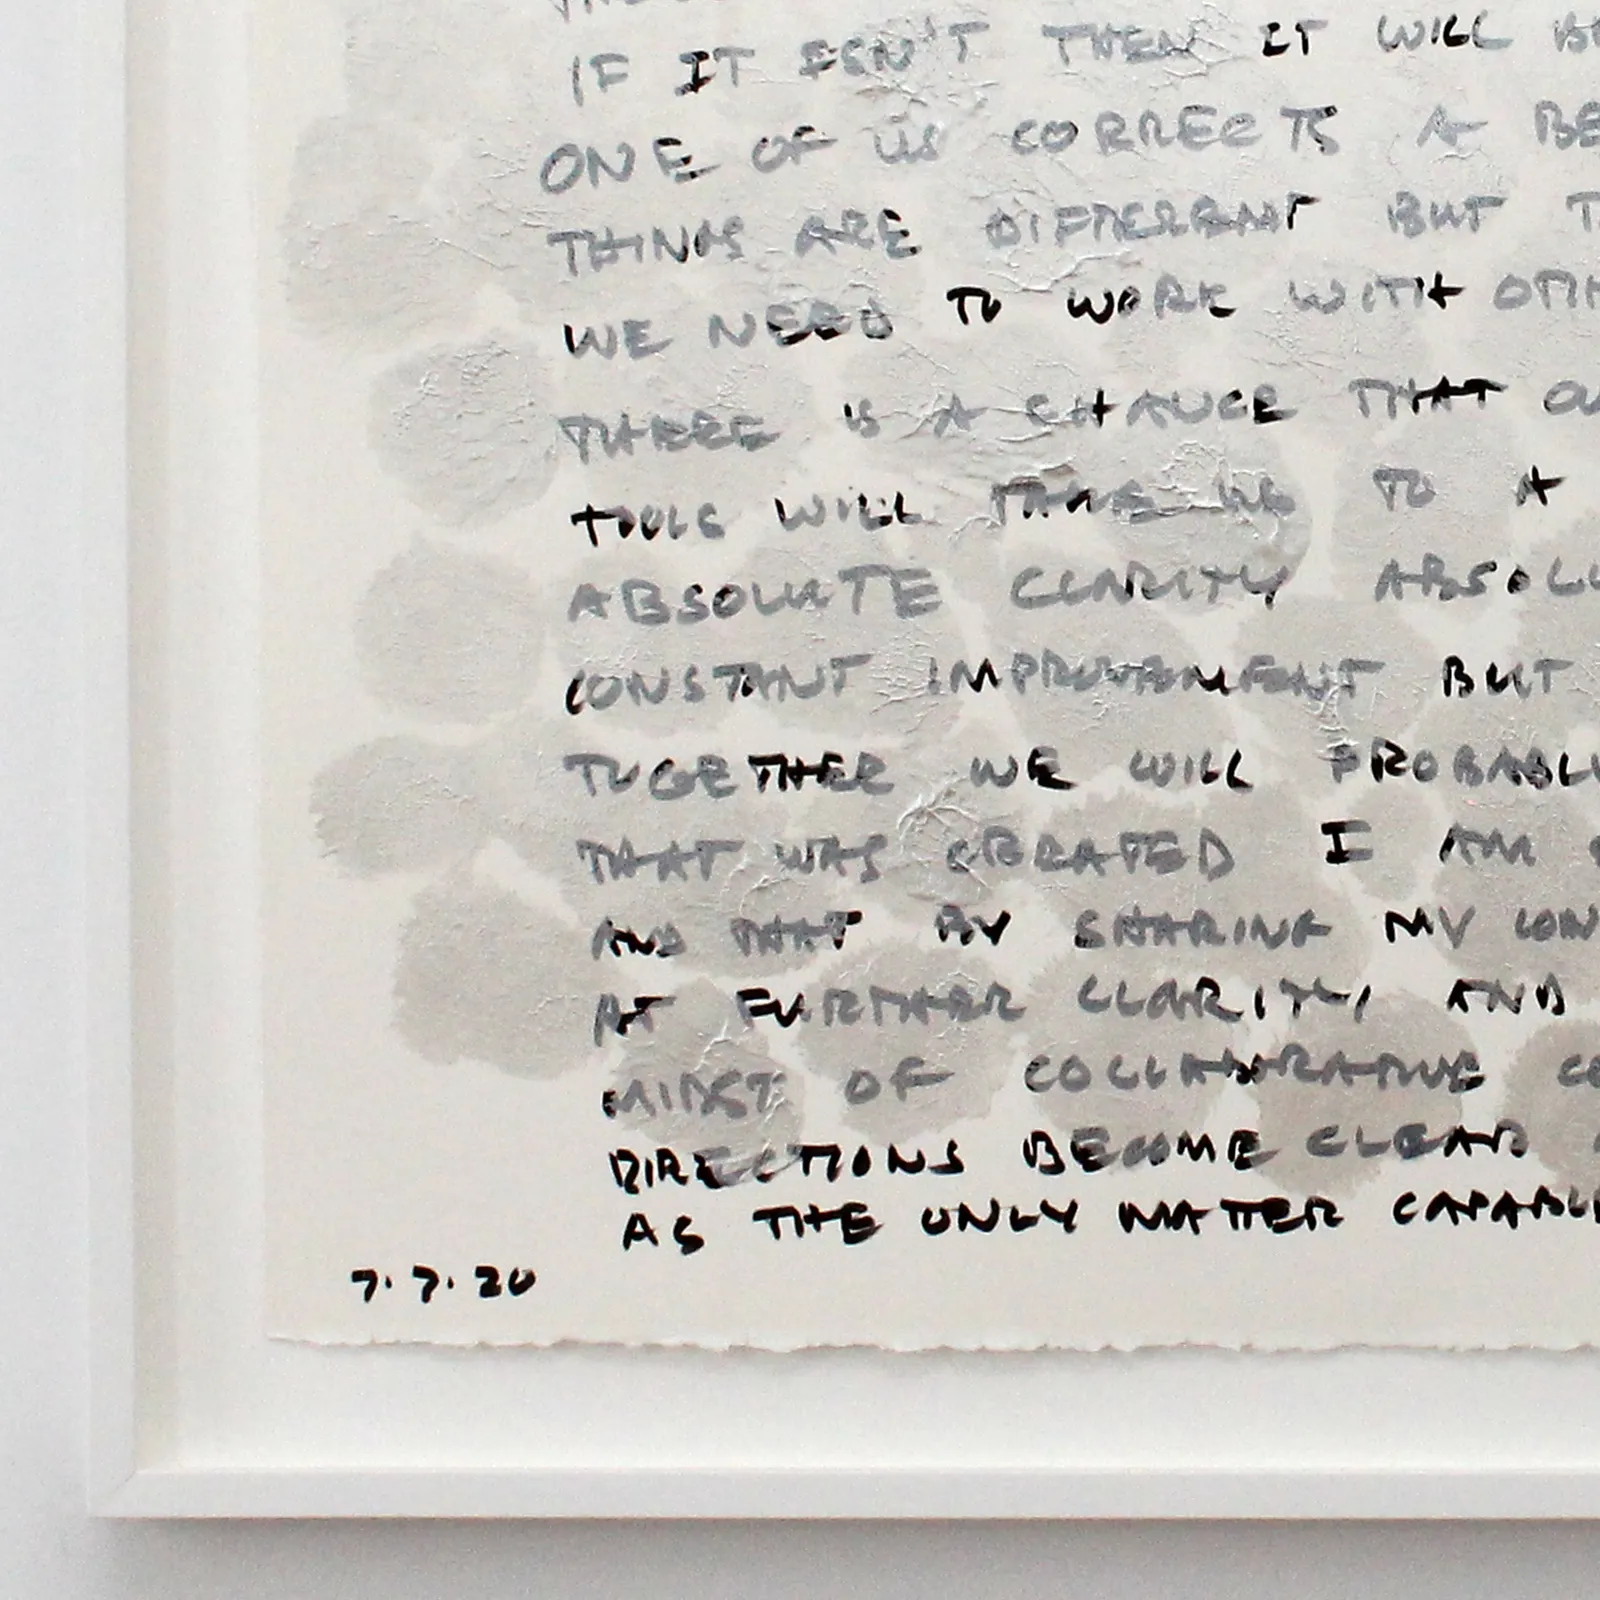 IF IT ISN'T THEN IT WILL BE
ONE OF US CORRECTS A BE
THINGS ARE DIFFERENT BUT T
WE NEED TO WORK WITH OTH
THERE IS A CHANCE THAT OU
TOOLS WILL TAKE US TO A
ABSOLUTE CLARITY ABSOLU
CONSTANT IMPROVEMENT BUT
TOGETHER WE WILL PROBABLY
THAT WAS CREATED I AM
AND THAT BY SHARING MY CON
AT FURTHER CLARITY, AND
MIDST OF COLLABORATIVE CO
DIRECTIONS BECOME CLEAR
AS THE ONLY MATTER CAPABL
7.7.20